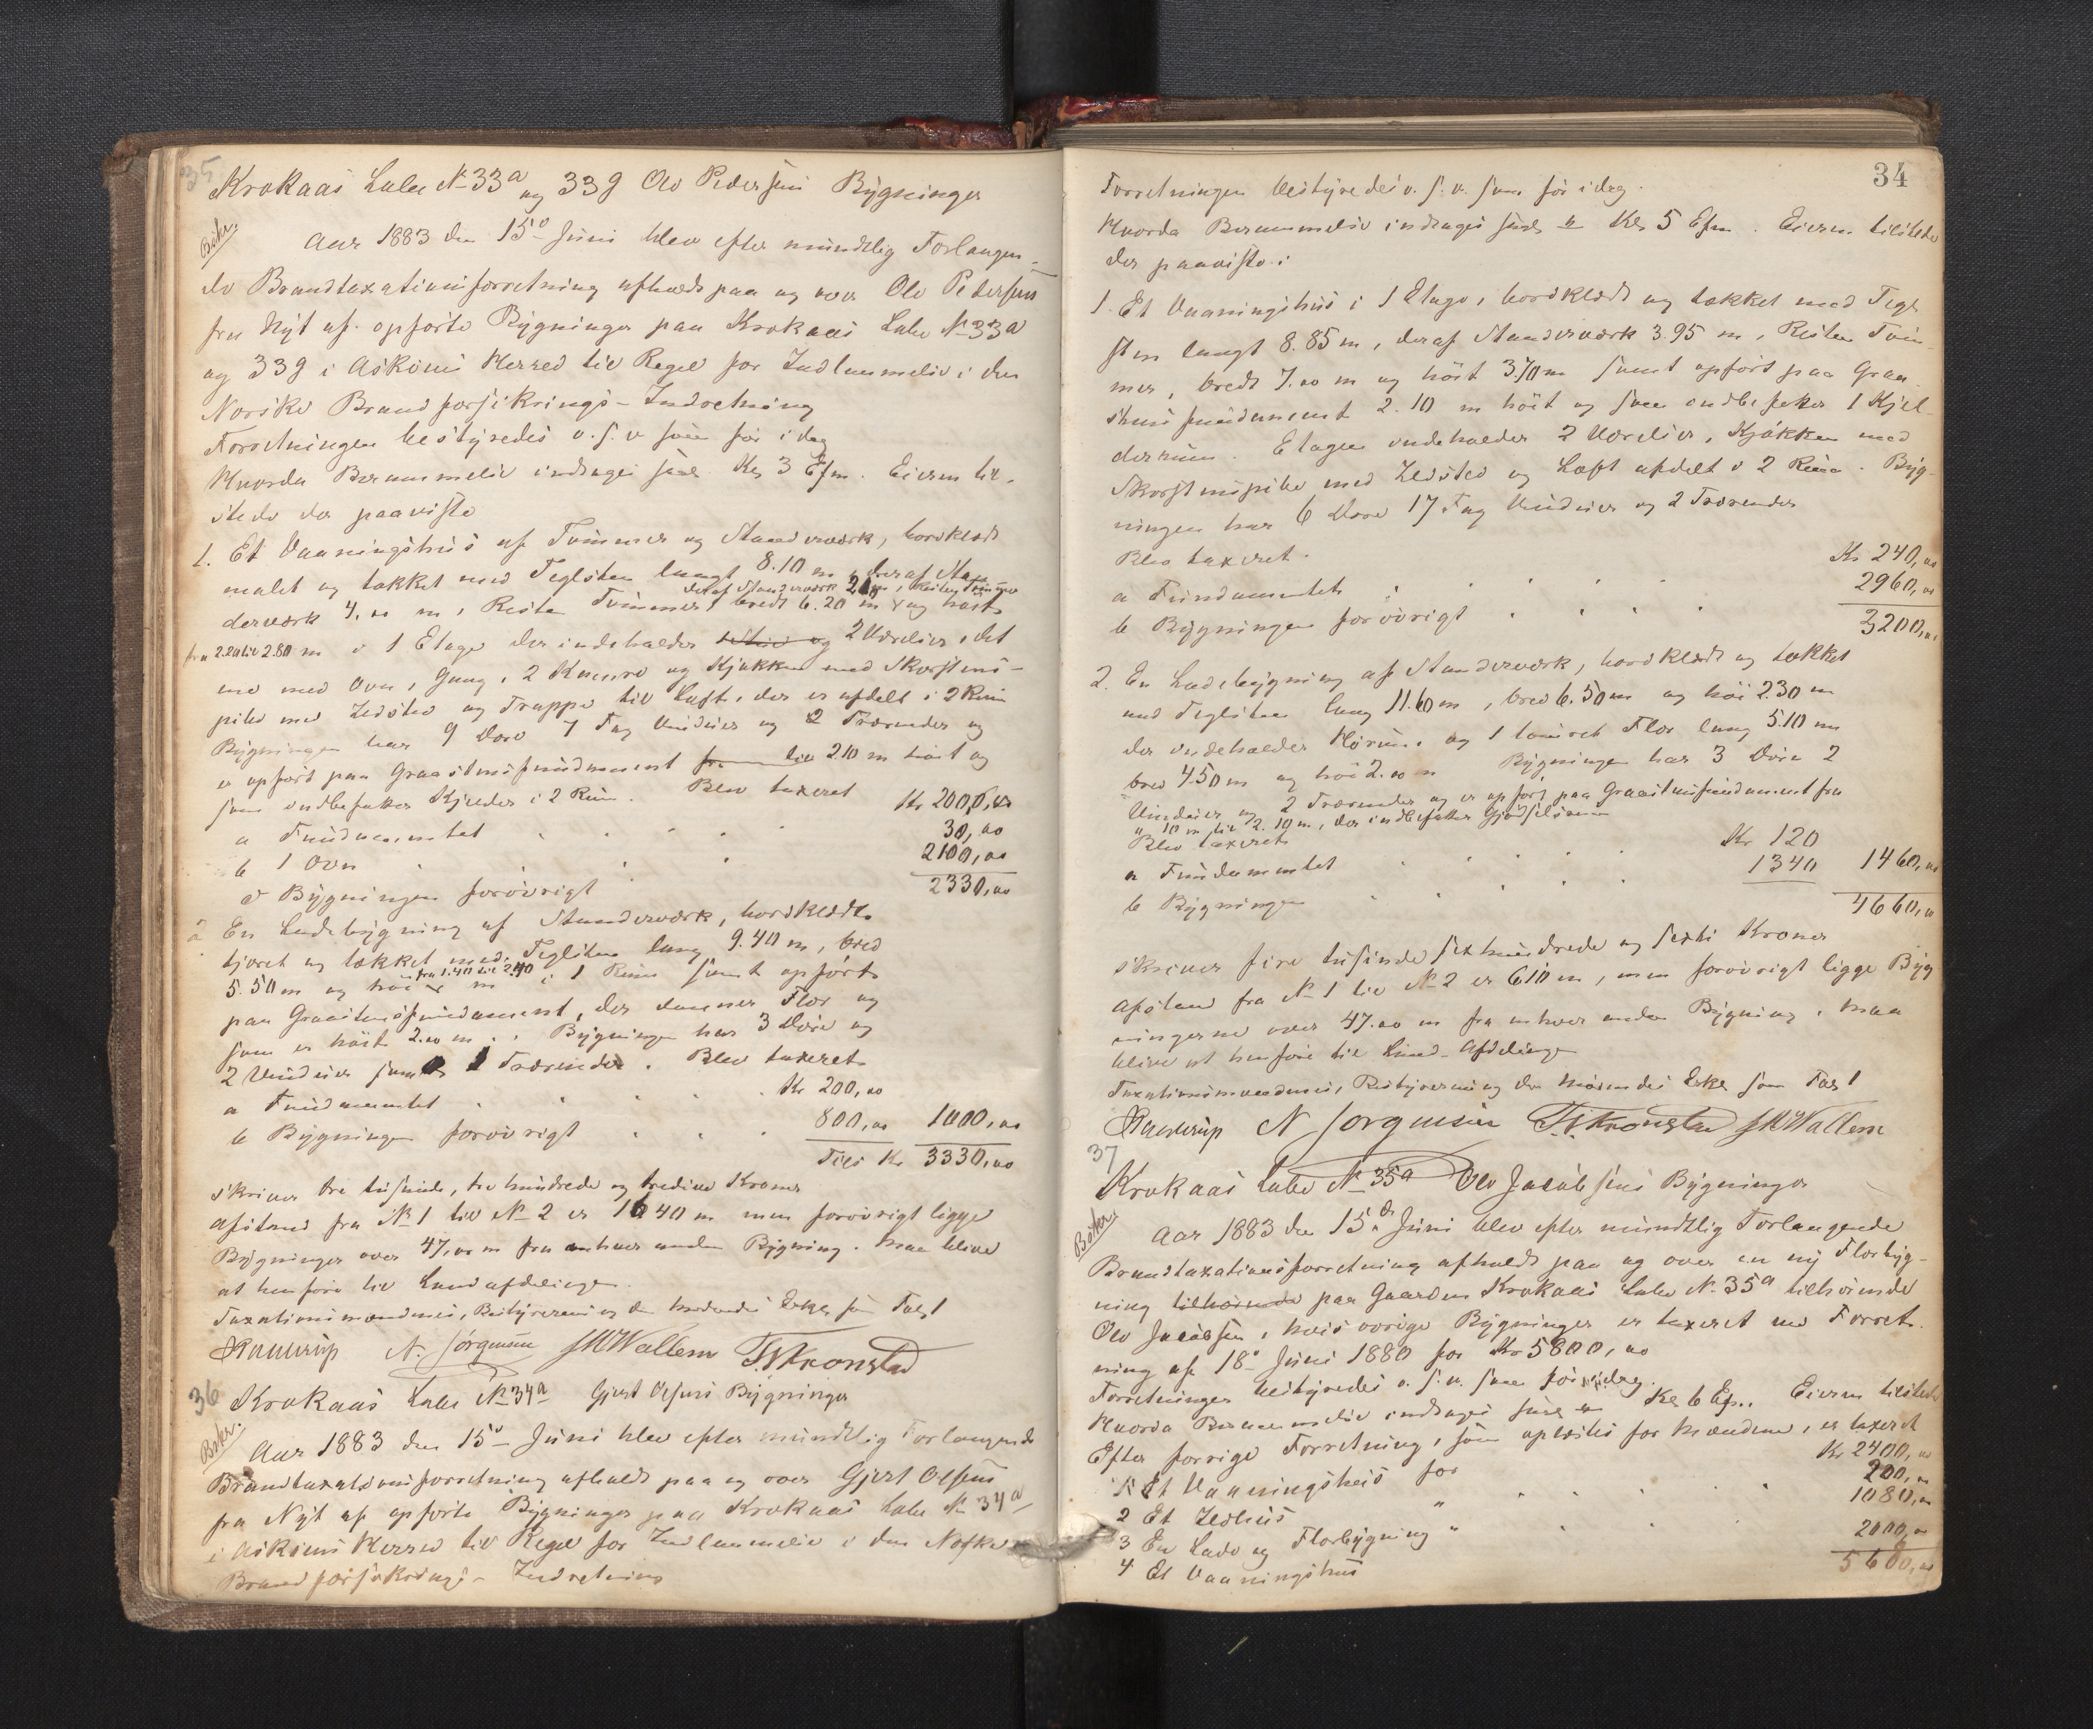 35
Krokaas Labr N 33a og 33g Ole Pedersens Bygninger
Bskr.
Aar 1883 den 15de Juni blev efter mundtlig Forlangen-
de Brandtaxationsforretning afholdt paa og over Ole Pedersens
fra Nyt af opførte Bygninger paa Krokaas Labr N 33a
og 33g i Askøens Herred til Regel for Indlemmelse i den
Norske Brandforsikrings-Indretning
Forretningen bestyredes o.s.v som før idag
Hvorda Berammelse indtages Kl 3 Efm. Eieren til-
stede der paaviste
1. Et Vaaningshus af Tømmer og Standerværk, bordklædt
malet og tækket med Teglsten langt 8.10 m, deraf Stan
deraf Standerværk 2.10 m, Resten Tømmer
derværk 4.00 m, Resten Tømmer, bredt 6.20 m og høit
fra 2.20 til 2.80 m i 1 Etage der indeholder 2 Værelser, det
ene med Ovn, Gang, 2 Kamre og Kjøkken med Skorstens-
pibe med Ildsted og Trappe til Loft, der er afdelt i 2 Rum
Bygningen har 9 Døre 7 Fag Vinduer og 2 Tværender og
er opført paa Graastensfundament fra til 2.10 m høit og
som indbefatter Kjelder i 2 Rum. Blev taxeret
a Fundamentet Kr 200,00
b 1 Ovn 30,00
c Bygningen forøvrigt 2100,00
2330,00
2 En Ladebygning af Standerværk, bordklædt
tjæret og tækket med Teglsten lang 9.40 m, bred
fra 1.40 til 2.40
5.50 m og høi m i 1 Rum samt opført
paa Graastensfundament, der danner Flor og
som er høit 2.00 m. Bygningen har 3 Døre og
2 Vinduer samt 1 Tværender. Blev taxeret
a Fundamentet Kr 200,00
b Bygningen forøvrigt 800,00 1000,00
Tils Kr 3330,00
skriver tre tusinde, tre hundrede og tredive Kroner
Afstand fra N 1 til N 2 er 16 40 m men forøvrigt ligge
Bygninger over 47,00 m fra enhver anden Bygning. maa blive
at henføre til Landafdelingen.
Taxationsmændenes, Bestyrerens og de Mødendes Eder som Fol 1
N. Jørgensen SMWallem TKronstad
36
Krokaas Labr N 34a Gjert Olsens Bygninger
Bskr.
Aar 1883 den 15de Juni blev efter mundtlig Forlangende
Brandtaxationsforretning afholdt paa og over Gjert Olsens
fra Nyt af opførte Bygninger paa Krokaas Labr N 34a
i Askøens Herred til Regel for Indlemmelse i den Norske
Brandforsikrings-Indretning
34
Forretningen bestyredes o.s.v. som før idag.
Hvorda Berammelse indtages Kl 5 Efm. Eieren tilstede
der paaviste:
1. Et Vaaningshus i 1 Etage, bordklædt og tækket med Tegl
sten langt 8.85 m, deraf Standerværk 3.95 m, Resten Tøm-
mer, bredt 7.00 m og høit 3.70 m samt opført paa Graa-
stensfundament 2.10 m høit og som indbefatter 1 Kjel-
derrum. Etagen indeholder 2 Værelser, Kjøkken med
Skorstenspibe med Ildsted og Loft afdelt i 2 Rum. Byg-
ningen har 6 Døre 17 Fag Vinduer og 2 Tværender
Blev taxeret.
a Fundamentet Kr 240,00
b Bygningen forøvrigt 2960,00
3200,00
2. En Ladebygning af Standerværk, bordklædt og tækket
med Teglsten lang 11.60 m, bred 6.50 m og høi 2.30 m
der indeholder Hørum og 1 tømret Flor lang 5.10 m
bred 4.50 m og høi 2.00 m Bygningen har 3 Døre 2
Vinduer og 2 Tværender og er opført paa Graastensfundament fra
" 10 m til 2.10 m, der indbefatter Gjødselsrum
Blev taxeret
a Fundamentet Kr 120
b Bygningen 1340 1460,00
4660,00
skriver fire tusinde sexhundrede og sexti Kroner
Afstand fra N 1 til N 2 er 6.10 m, men forøvrigt ligge Byg
ningerne over 47.00 m fra enhver anden Bygning, maa
blive at henføre til Land-Afdelingen
Taxationsmændenes, Bestyrerens og de Mødendes Eder som Fol 1
N Jørgensen TKronstad SMWallem
37
Krokaas Labr N 35a Ole Jacobsens Bygninger
Bskr.
Aar 1883 den 15de Juni blev efter mundtlig Forlangende
Brandtaxationsforretning afholdt paa og over en ny Florbyg-
ning tilhørende paa Gaarden Krokaas Labr N. 35a tilhørende
Ole Jacobsen, hvis øvrige Bygninger er taxeret ved Forret-
ning af 18de Juni 1880 for Kr 5800,00
Forretningen bestyredes o.s.v. som før idag.
Hvorda Berammelse indtages Kl 6 Ef.. Eieren tilstede
Efter forrige Forretning, som oplæstes for Mændene, er taxeret
1 Et Vaaningshus for Kr 2400,00
2 Et Ildhus " 200,00
3 En Lade og Florbygning " 1080,00
4 Et Vaaningshus 2000,00
5600,00